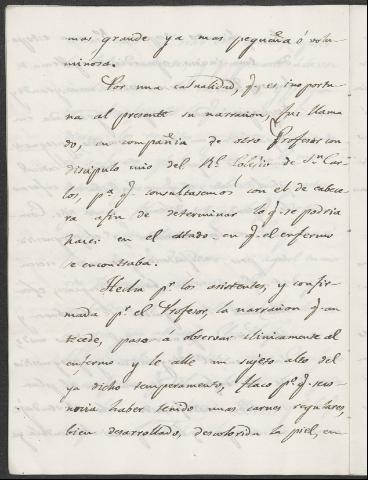 mas grande ya mas pequeña ó volu-
minosa.
Por una casualidad, q.e es inoportu-
na al presente su narracion, fui llama-
do, en compañia de otro Profesor con
discipulo mio del R.l Colegio de S.n Car-
los, p.a q.e consultasemos con el de cabece-
ra afin de determinar lo q.e se podria
hacer en el estado en q.e el enfermo
se encontraba.
Hecha p.r los asistentes, y confir-
mada p.r el Profesor, la narracion q.e an-
tecede, paso a observar clinicamente al
enfermo y le allé un sujeto alto del
ya dicho temperamento, flaco p.o q.e se co-
nocia haber tenido unas carnes regulares,
bien desarrollado, descolorida la piel, en-